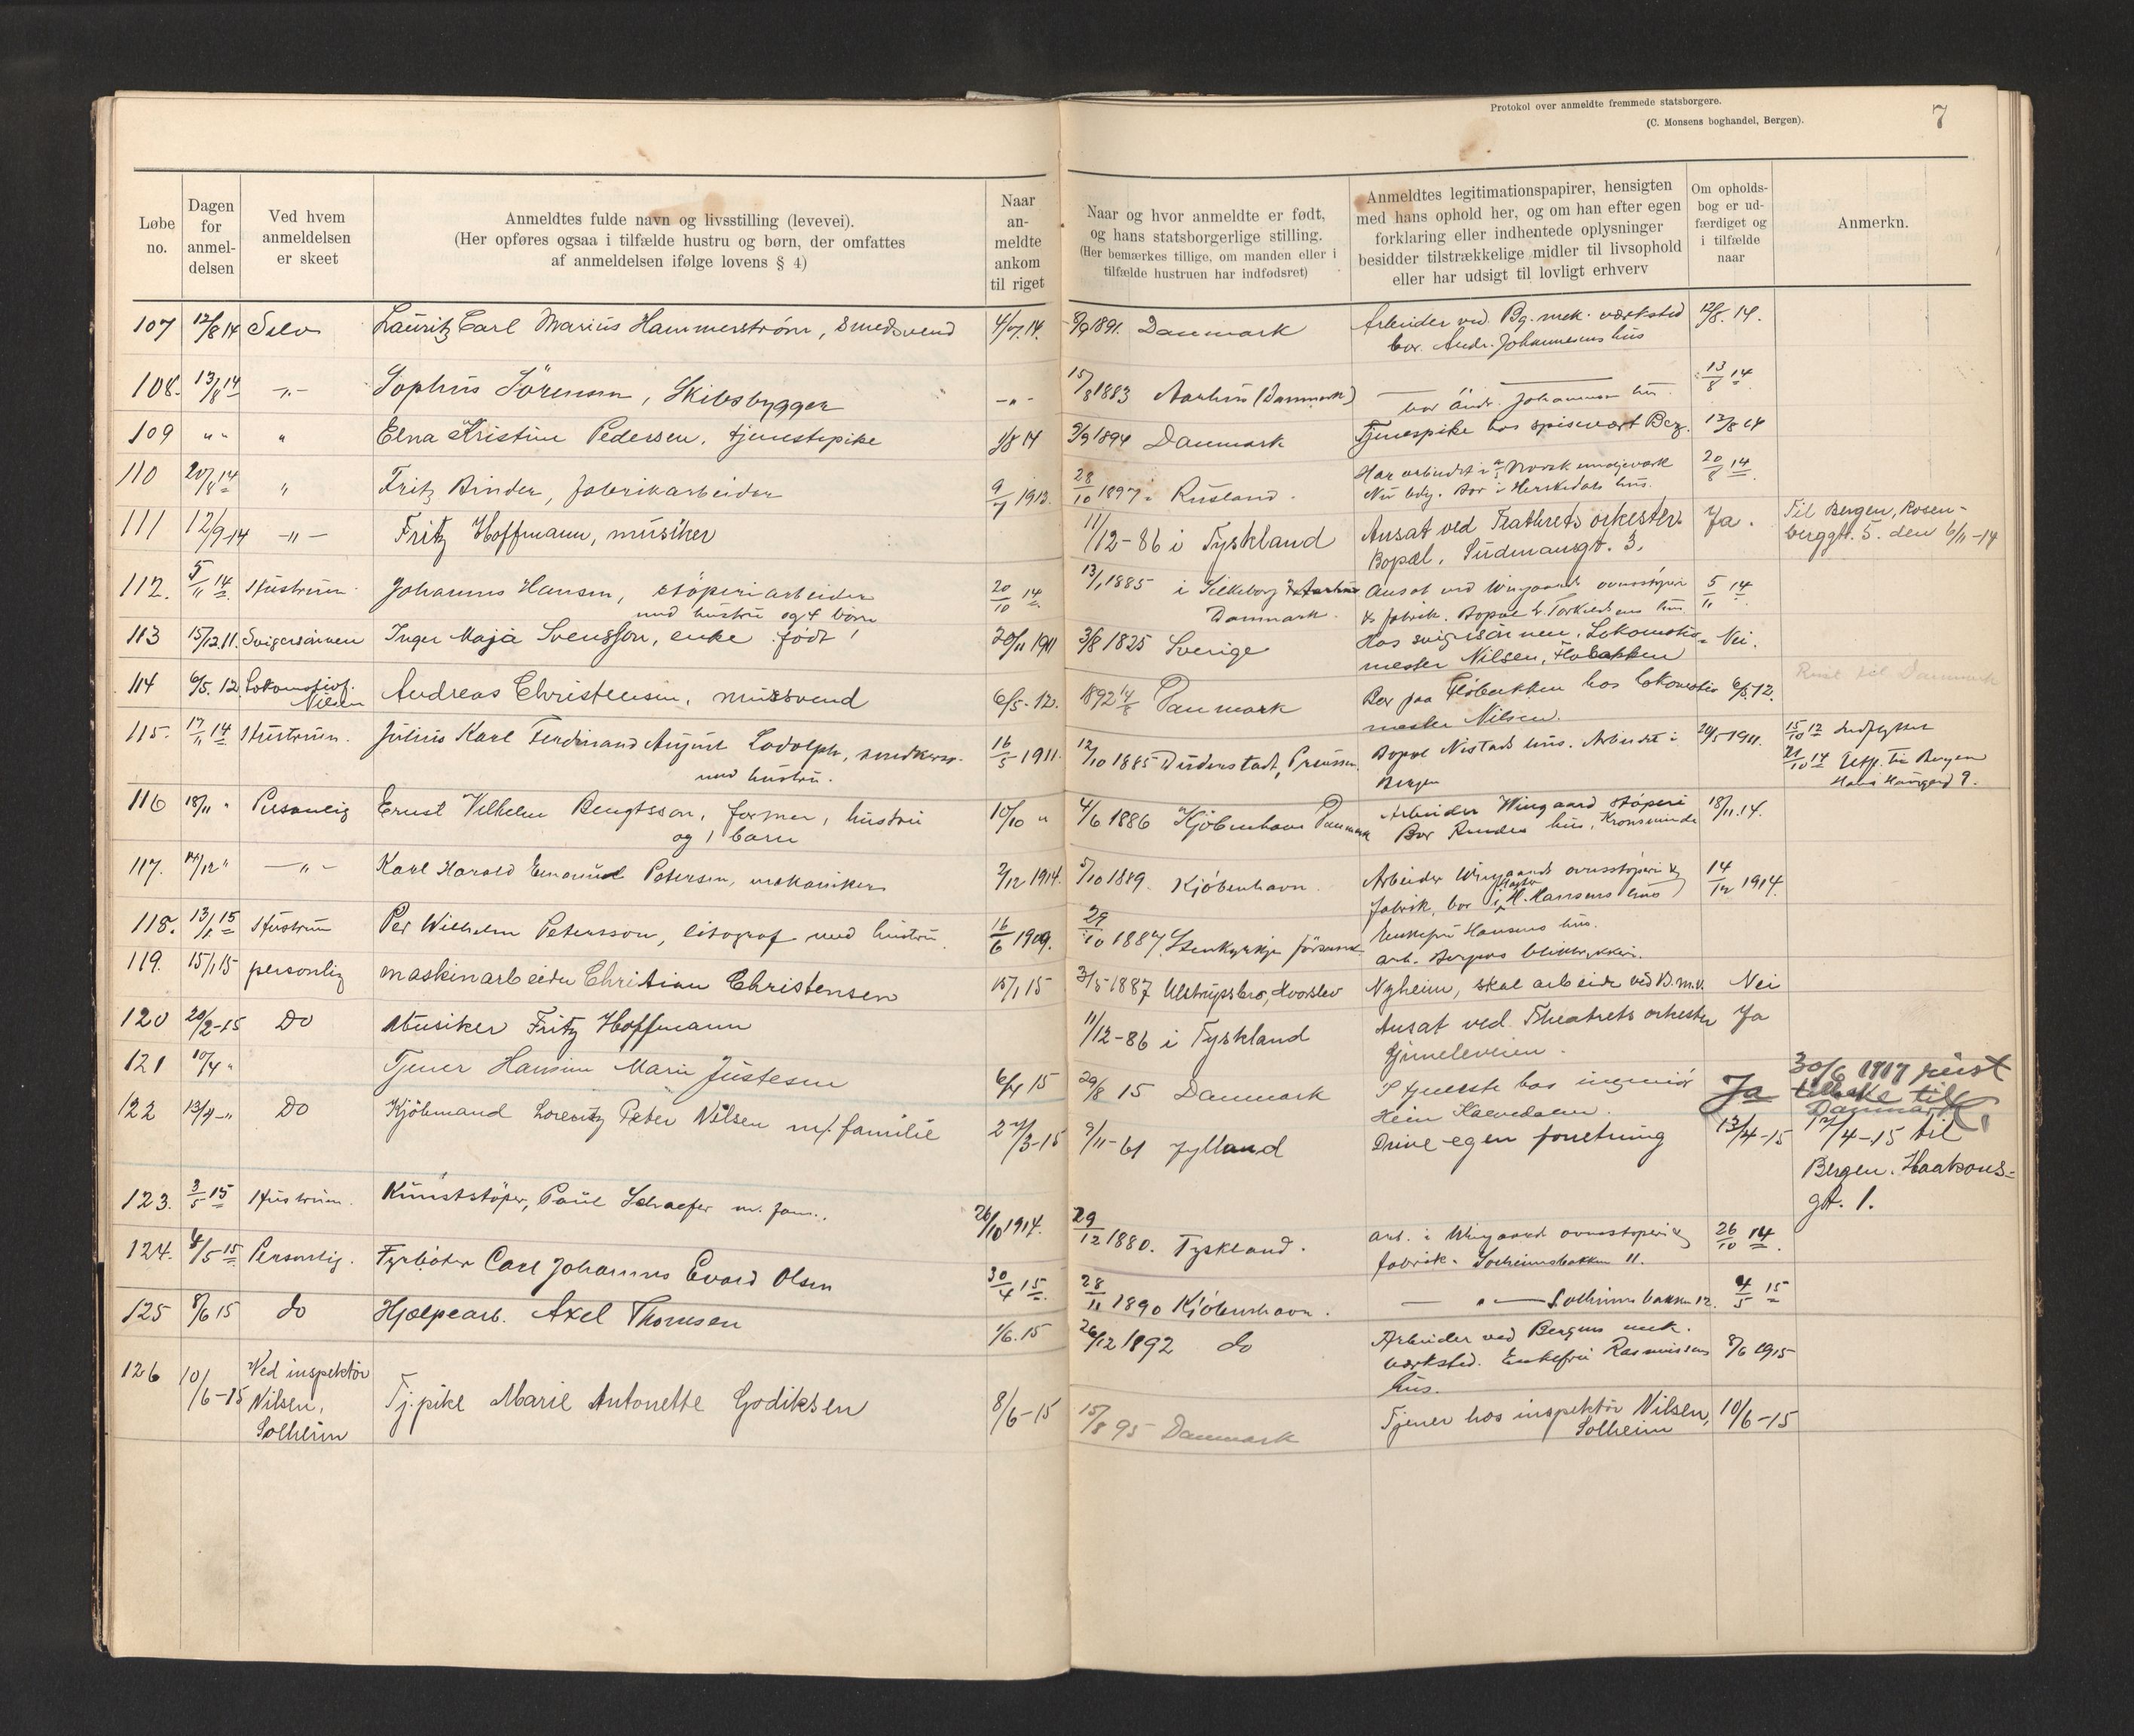 Protokol over anmeldte fremmede statsborgere.
(C. Monsens boghandel, Bergen).
7
Løbe no.
Dagen for anmeldelsen
Ved hvem anmeldelsen er skeet
Anmeldtes fulde navn og livsstilling (levevei).
(Her opføres ogsaa i tilfælde hustru og børn, der omfattes
af anmeldelsen ifølge lovens § 4)
Naar anmeldte ankom til riget
Naar og hvor anmeldte er født,
og hans statsborgerlige stilling.
(Her bemærkes tillige, om manden eller i
tilfælde hustruen har indfødsret)
Anmeldtes legitimationspapirer, hensigten
med hans ophold her, og om han efter egen
forklaring eller indhentede oplysninger
besidder tilstrækkelige midler til livsophold
eller har udsigt til lovligt erhverv
Om opholdsbog er udfærdiget og i tilfælde naar
Anmerkn.
107 12/8 14 Selv Lauritz Carl Marius Hammerstrøm, smedsvend 4/7.14. 8/9 1891. Danmark Arbeider ved Bg. mek. værksted 12/8. 14.
bor. Andr. Johannesens hus
108. 13/8 14 -"- Sophus Sörensen, Skibsbygger -"- 15/8 1883 Aarhus (Danmark) — " — 13/8 14
bor Andr. Johannesens hus.
109 " " " Elna Kristine Pedersen, tjenestepike 1/8 14 9/9 1894 Danmark Tjenespike hos spisevært Berg. 13/8 14
110 20/8 14 " Fritz Binder, fabrikarbeider 9/7 1913. 28/10 1897 i Rusland. Har arbeidet i Norsk 20/8 14
Nu ledg. Bor i Herskedals hus.
111 12/9-14 -"- Fritz Hoffmann, musiker 11/12-86 i Tyskland Ansat ved Teathrets orkester. Ja. Til Bergen, Rosen-
Bopæl, Sudmansgt. 3. berggt. 5. den 6/11-14
112. 5/11 14 Hustruen Johannes Hansen, støperiarbeider 20/10 14 13/1 1885 i Silkeborg Ansat ved Wingaards ovnsstøperi 5/11 14
med hustru og 4 børn Danmark. & fabrik. Bopæl Torkildsens hus
113 15/12.11. Svigersønnen Inger Maja Svensson, enke født 20/11 1911 3/8 1825 Sverige Hos svigersönnen, Lokomotiv- Nei.
mester Nilsen, Fløbakken
114 6/5. 12. Lokomotivf. Nilsen Andreas Christensen, mursvend 6/5-12. 1892 14/8 Danmark Bor paa Fløbakken hos lokomotiv 6/5.12. Reist til Danmark
mester Nilsen.
115. 17/11 14 Hustruen. Julius Karl Ferdinand August Lodolph, 16/5 1911. 12/10 1885 Duderstadt, Preussen. Bopæl Nistads hus. Arbeidet i 20/5 1911. 15/10 12 Indflyttet
med hustru. Bergen 21/10 14 Utfl. til Bergen
116 18/11 " Personlig Ernst Vilhelm Bengtsson, former, hustru 10/10 " 4/6 1886 Kjöbenhavn Danmark Arbeider Wingaard støperi 18/11.14.
og 1 barn Bor Rundes hus, Kronsminde
117. 14/12 " -"- Karl Harald Emanuel Petersen, mekaniker 2/12 1914. 5/10 1889. Kjöbenhavn. Arbeider Wingaards ovnsstøperi & 14/12 1914.
fabrik, bor i H. Hansens hus
118. 13/1 15 Hustruen Per Wilhelm Petersson, litograf med hustru. 16/6 1909. 29/10 1887. Enkefru Hansens hus.
arb. Bergens bliktrykkeri.
119. 15/1 15 personlig maskinarbeider Christian Christensen 15/1 15 3/5 1887 Ulstrupsbro, Hvorslev Nyheim, skal arbeide ved B.m.v. Nei
120 20/2-15 Do Musiker Fritz Hoffmann 11/12-86 i Tyskland Ansat ved Theatrets orkester Ja
Gimleveien.
121 10/4 " Tjener Hansine Marie Justesen 6/4 15 29/8 15 Danmark I tjeneste hos ingeniør Ja 30/6 1917 reist
Hein tilbake til
Danmark.
122 13/4-" Do Kjöbmand Lorentz Peter Nilsen m/ familie 27/3-15 9/11-61 Jylland Drive egen forretning 13/4-15 17/4-15 til
Bergen. Haakons-
gt. 1.
123. 3/5 15 Hustruen. Kunststøper, Paul Schaefer m. fam.. 26/10 1914. 29/12 1880. Tyskland. arb. i Wingaards ovnsstøperi & 26/10 14.
fabrik. Solheimsbakken 11.
124. 4/5 15 Personlig. Fyrbøter Carl Johannes Evard Olsen 30/4 15. 28/11 1890 Kjöbenhavn. — " — Solheimsbakken 12. 4/5 15
125 8/6 15 do Hjælpearb. Axel Thomsen 1/6.15 26/12 1892 do Arbeider ved Bergens mek. 8/6 1915
værksted. Enkefru Rasmussens
hus.
126 10/6-15 Ved inspektør Nilsen, Solheim Tj.pike Marie Antonette Godiksen 8/6-15 15/8 95 Danmark Tjener hos inspektør Nilsen, 10/6-15
Solheim